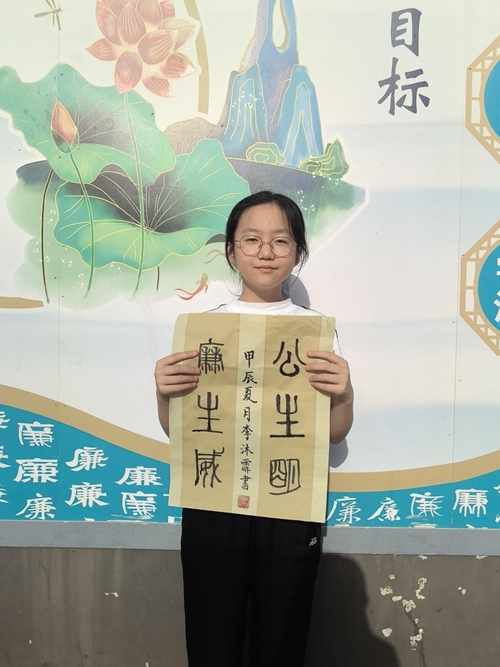 目标
公生明
廉生威
甲辰夏月李沐霏書
廉
廉 廉
廉 廉 廉
廉 廉
廉 廉 廉 廉